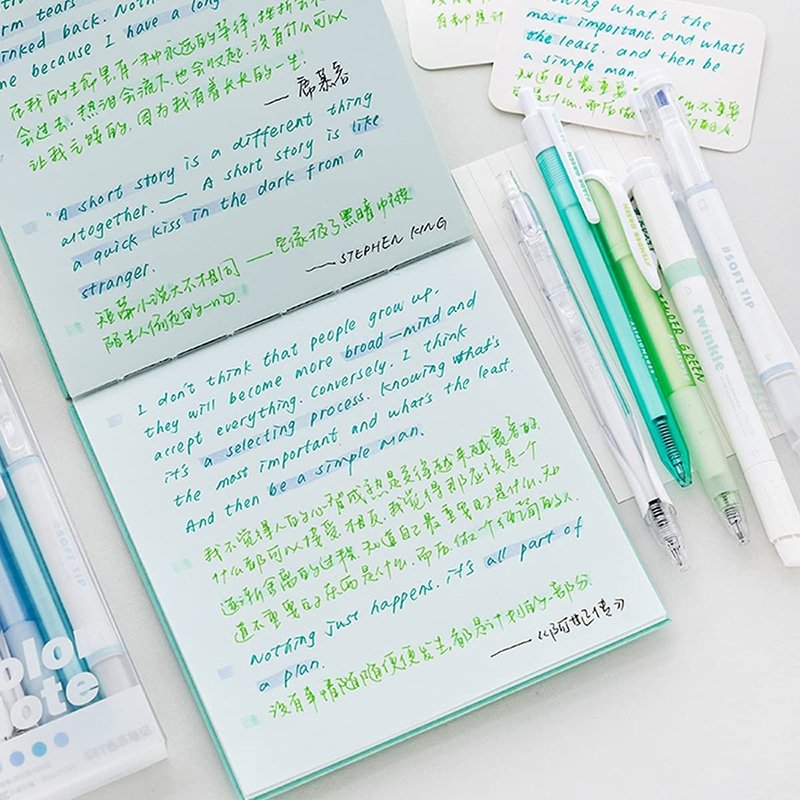 rm tears
inked back. Nothin
me because I have a long
在我的生命里有一种永远的等待.挫折会
会过去.热泪会流下.也会收起.没有什么可以
让我气馁的.因为我有着长长的一生.
——席慕容
"A short story is a different thing
altogether. — A short story is like
a quick kiss in the dark from a
stranger.
短篇小说大不相同——它像极了黑暗中被
陌生人偷走的一吻.
——STEPHEN KING
I don't think that people grow up.
they will become more broad—mind and
accept everything. Conversely. I think
it's a selecting process. Knowing what's
the most important and what's the least.
And then be a simple man.
我不觉得人的心智成熟是变得越来越宽容的.
什么都可以接受.相反.我觉得那应该是一个
逐渐舍离的过程.知道自己最重要的是什么.知
道不重要的东西是什么.而后.做一个纯简的人.
——《阿甘正传》
Nothing just happens. it's all part of
a plan.
没有事情随随便便发生.都是计划的一部分.
owing what's the
most important. and what's
the least. and then be
a simple man.
知道自己最重要
是什么.而后做
#SOFT TIP
TENDER GREEN
Twinkle
#SOFT TIP
olor
ote